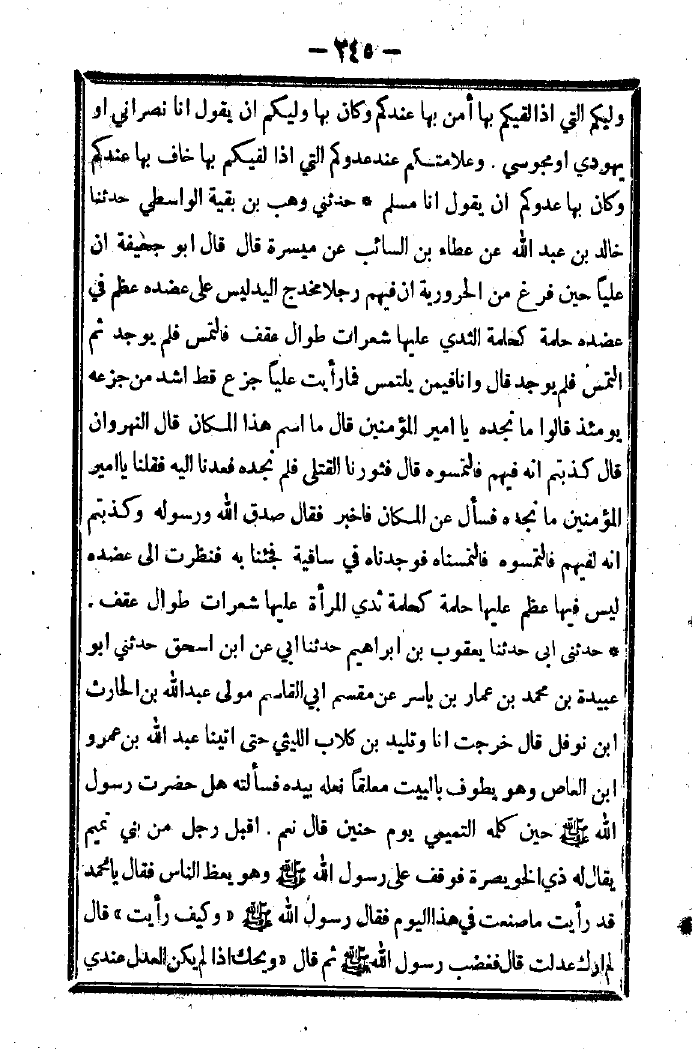 — ٣٤٥ —
وليكم التي اذا لقيكم بها أمن بها عندكم وكان بها وليكم ان يقول انا نصراني او
يهودي او مجوسي . وعلامتكم عند عدوكم التي اذا لقيكم بها خاف بها عندكم
وكان بها عدوكم ان يقول انا مسلم * حدثني وهب بن بقية الواسطي حدثنا
خالد بن عبد الله عن عطاء بن السائب عن ميسرة قال قال ابو جحيفة ان
علياً حين فرغ من الحرورية ان فيهم رجلا مخدج اليد ليس على عضده عظم في
عضده حلمة كحلمة الثدي عليها شعرات طوال عقف فالتمس فلم يوجد ثم
التمس فلم يوجد قال وانا فيمن يلتمس فما رأيت علياً جزع قط اشد من جزعه
يومئذ قالوا ما نجده يا امير المؤمنين قال ما اسم هذا المكان قال النهروان
قال كذبتم انه فيهم فالتمسوه قال فثورنا القتلى فلم نجده فعدنا اليه فقلنا يا امير
المؤمنين ما نجده فسأل عن المكان فاخبر فقال صدق الله ورسوله وكذبتم
انه لفيهم فالتمسوه فالتمسناه فوجدناه في ساقية فجئنا به فنظرت الى عضده
ليس فيها عظم عليها حلمة كحلمة ثدي المرأة عليها شعرات طوال عقف .
* حدثني ابى حدثنا يعقوب بن ابراهيم حدثنا ابي عن ابن اسحق حدثني ابو
عبيدة بن محمد بن عمار بن ياسر عن مقسم ابي القاسم مولى عبد الله بن الحارث
ابن نوفل قال خرجت انا وتليد بن كلاب الليثي حتى اتينا عبد الله بن عمرو
ابن العاص وهو يطوف بالبيت معلقاً نعله بيده فسألته هل حضرت رسول
الله ﷺ حين كلمه التميمي يوم حنين قال نعم . اقبل رجل من بني تميم
يقال له ذي الخويصرة فوقف على رسول الله ﷺ وهو يعظ الناس فقال يا محمد
قد رأيت ما صنعت في هذا اليوم فقال رسول الله ﷺ « وكيف رأيت » قال
لم ارك عدلت قال فغضب رسول الله ﷺ ثم قال « ويحك اذا لم يكن العدل عندي